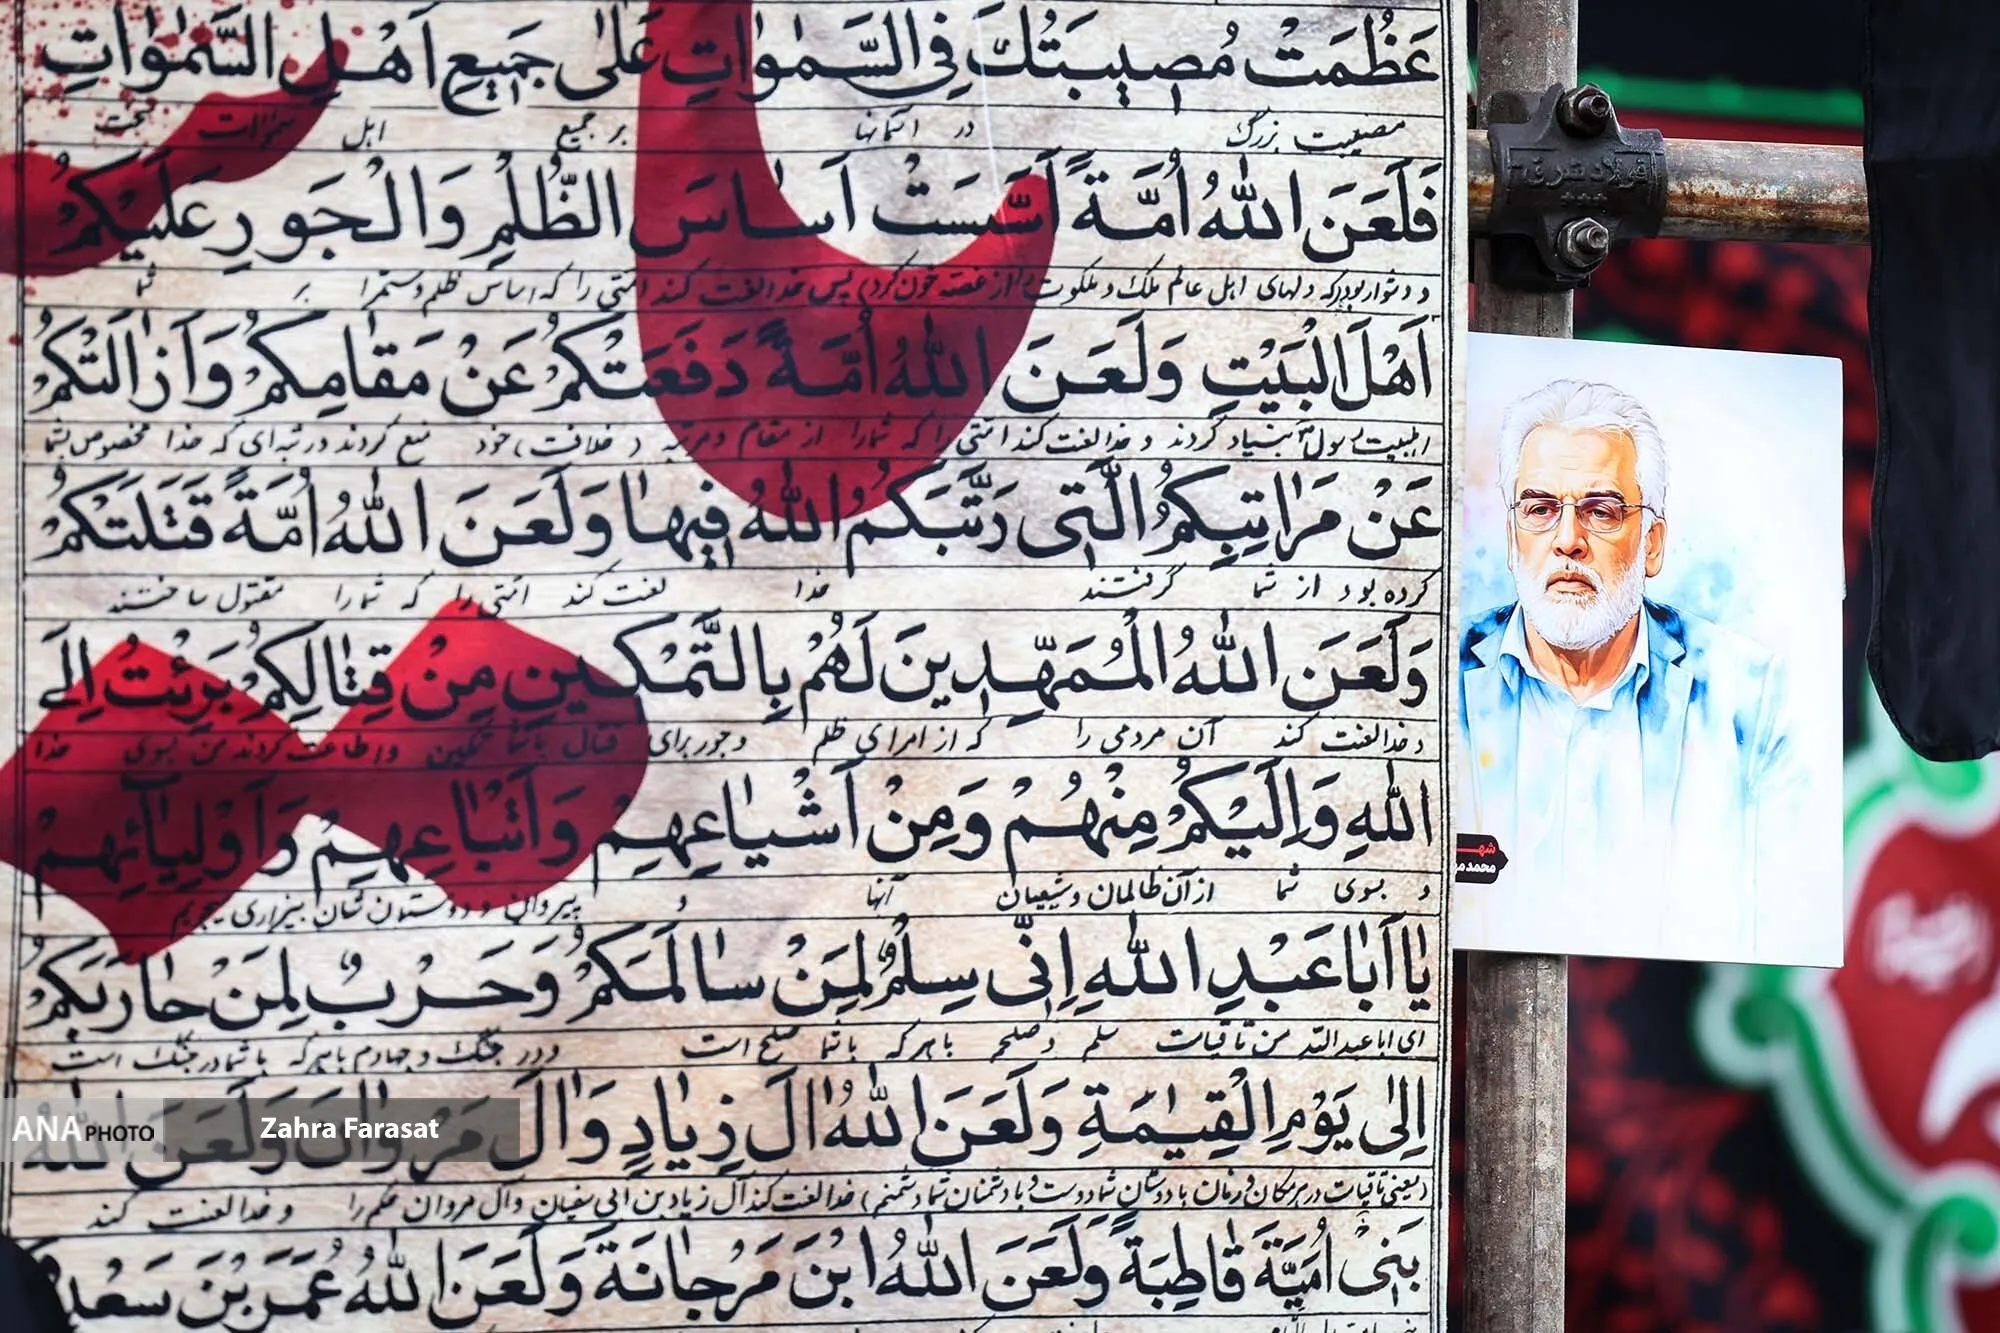 عَظُمَتْ مُصیبَتُكَ فِی السَّمٰوٰاتِ عَلٰی جَمیعِ اَهْلِ السَّمٰوٰاتِ
مصیبت بزرگ در آسمانها بر جمیع اهل سموات سخت
فَلَعَنَ اللهُ اُمَّةً اَسَّسَتْ اَسٰاسَ الظُّلْمِ وَالْجَوْرِ عَلَیْكُمْ
و دشوار بود (که دلهای اهل عالم ملک و ملکوت از غصه خون کرد) پس خدا لعنت کند امتی را که اساس ظلم و ستم را بر شما
اَهْلَ الْبَیْتِ وَلَعَنَ اللهُ اُمَّةً دَفَعَتْكُمْ عَنْ مَقٰامِكُمْ وَاَزٰالَتْكُمْ
اهلبیت رسول بنیاد کردند و خدا لعنت کند امتی را که شما را از مقام و مرتبه (خلافت) خود منع کردند و رتبه‌ای که خدا مخصوص بشما
عَنْ مَرٰاتِبِكُمُ الَّتی رَتَّبَكُمُ اللهُ فیهٰا وَلَعَنَ اللهُ اُمَّةً قَتَلَتْكُمْ
کرده بود از شما گرفتند خدا لعنت کند امتی را که شما را مقتول ساختند
وَلَعَنَ اللهُ الْمُمَهِّدینَ لَهُمْ بِالتَّمْكینِ مِنْ قِتٰالِكُمْ بَرِئْتُ اِلَی
و خدا لعنت کند آن مردمی را که از امرای ظلم و جور برای قتال با شما تمکین و اطاعت کردند من بسوی خدا
اللهِ وَاِلَیْكُمْ مِنْهُمْ وَمِنْ اَشْیٰاعِهِمْ وَاَتْبٰاعِهِمْ وَاَوْلِیٰآئِهِمْ
و بسوی شما از آن ظالمان و شیعیان آنها و پیروان و دوستان شان بیزاری میجویم
یٰا اَبٰا عَبْدِ اللهِ اِنّی سِلْمٌ لِمَنْ سٰالَمَكُمْ وَحَرْبٌ لِمَنْ حٰارَبَكُمْ
ای اباعبدالله من تا قیامت سلم و صلحم با هر که با شما صلح است و در جنگ و جهادم با هر که با شما در جنگ است
اِلٰی یَوْمِ الْقِیٰمَةِ وَلَعَنَ اللهُ اٰلَ زِیٰادٍ وَاٰلَ مَرْوٰانَ وَلَعَنَ اللهُ
(یعنی تا قیامت در هر مکان و زمان با دوستان شما دوست و با دشمنان شما دشمنم) خدا لعنت کند آل زیاد بن ابی سفیان و آل مروان حکم را و خدا لعنت کند
بَنی اُمَیَّةَ قٰاطِبَةً وَلَعَنَ اللهُ ابْنَ مَرْجٰانَةَ وَلَعَنَ اللهُ عُمَرَ بْنَ سَعْدٍ
فولاد شرق
محمد
ANA PHOTO
Zahra Farasat